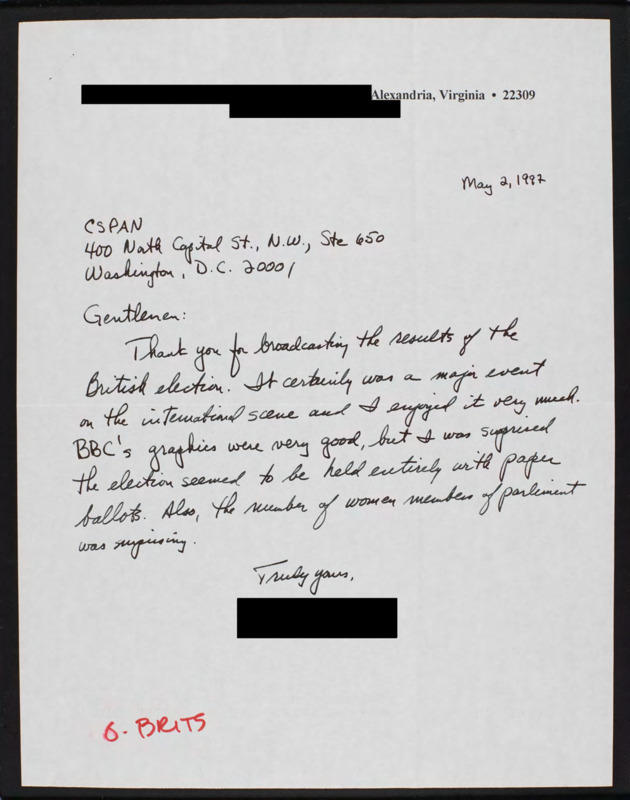 Alexandria, Virginia • 22309
May 2, 1997
CSPAN
400 North Capital St., N.W., Ste 650
Washington, D.C. 20001
Gentlemen:
Thank you for broadcasting the results of the
British election. It certainly was a major event
on the international scene and I enjoyed it very much.
BBC's graphics were very good, but I was suprised
the election seemed to be held entirely with paper
ballots. Also, the number of women members of parliment
was surprising.
Truly yours,
6- BRITS